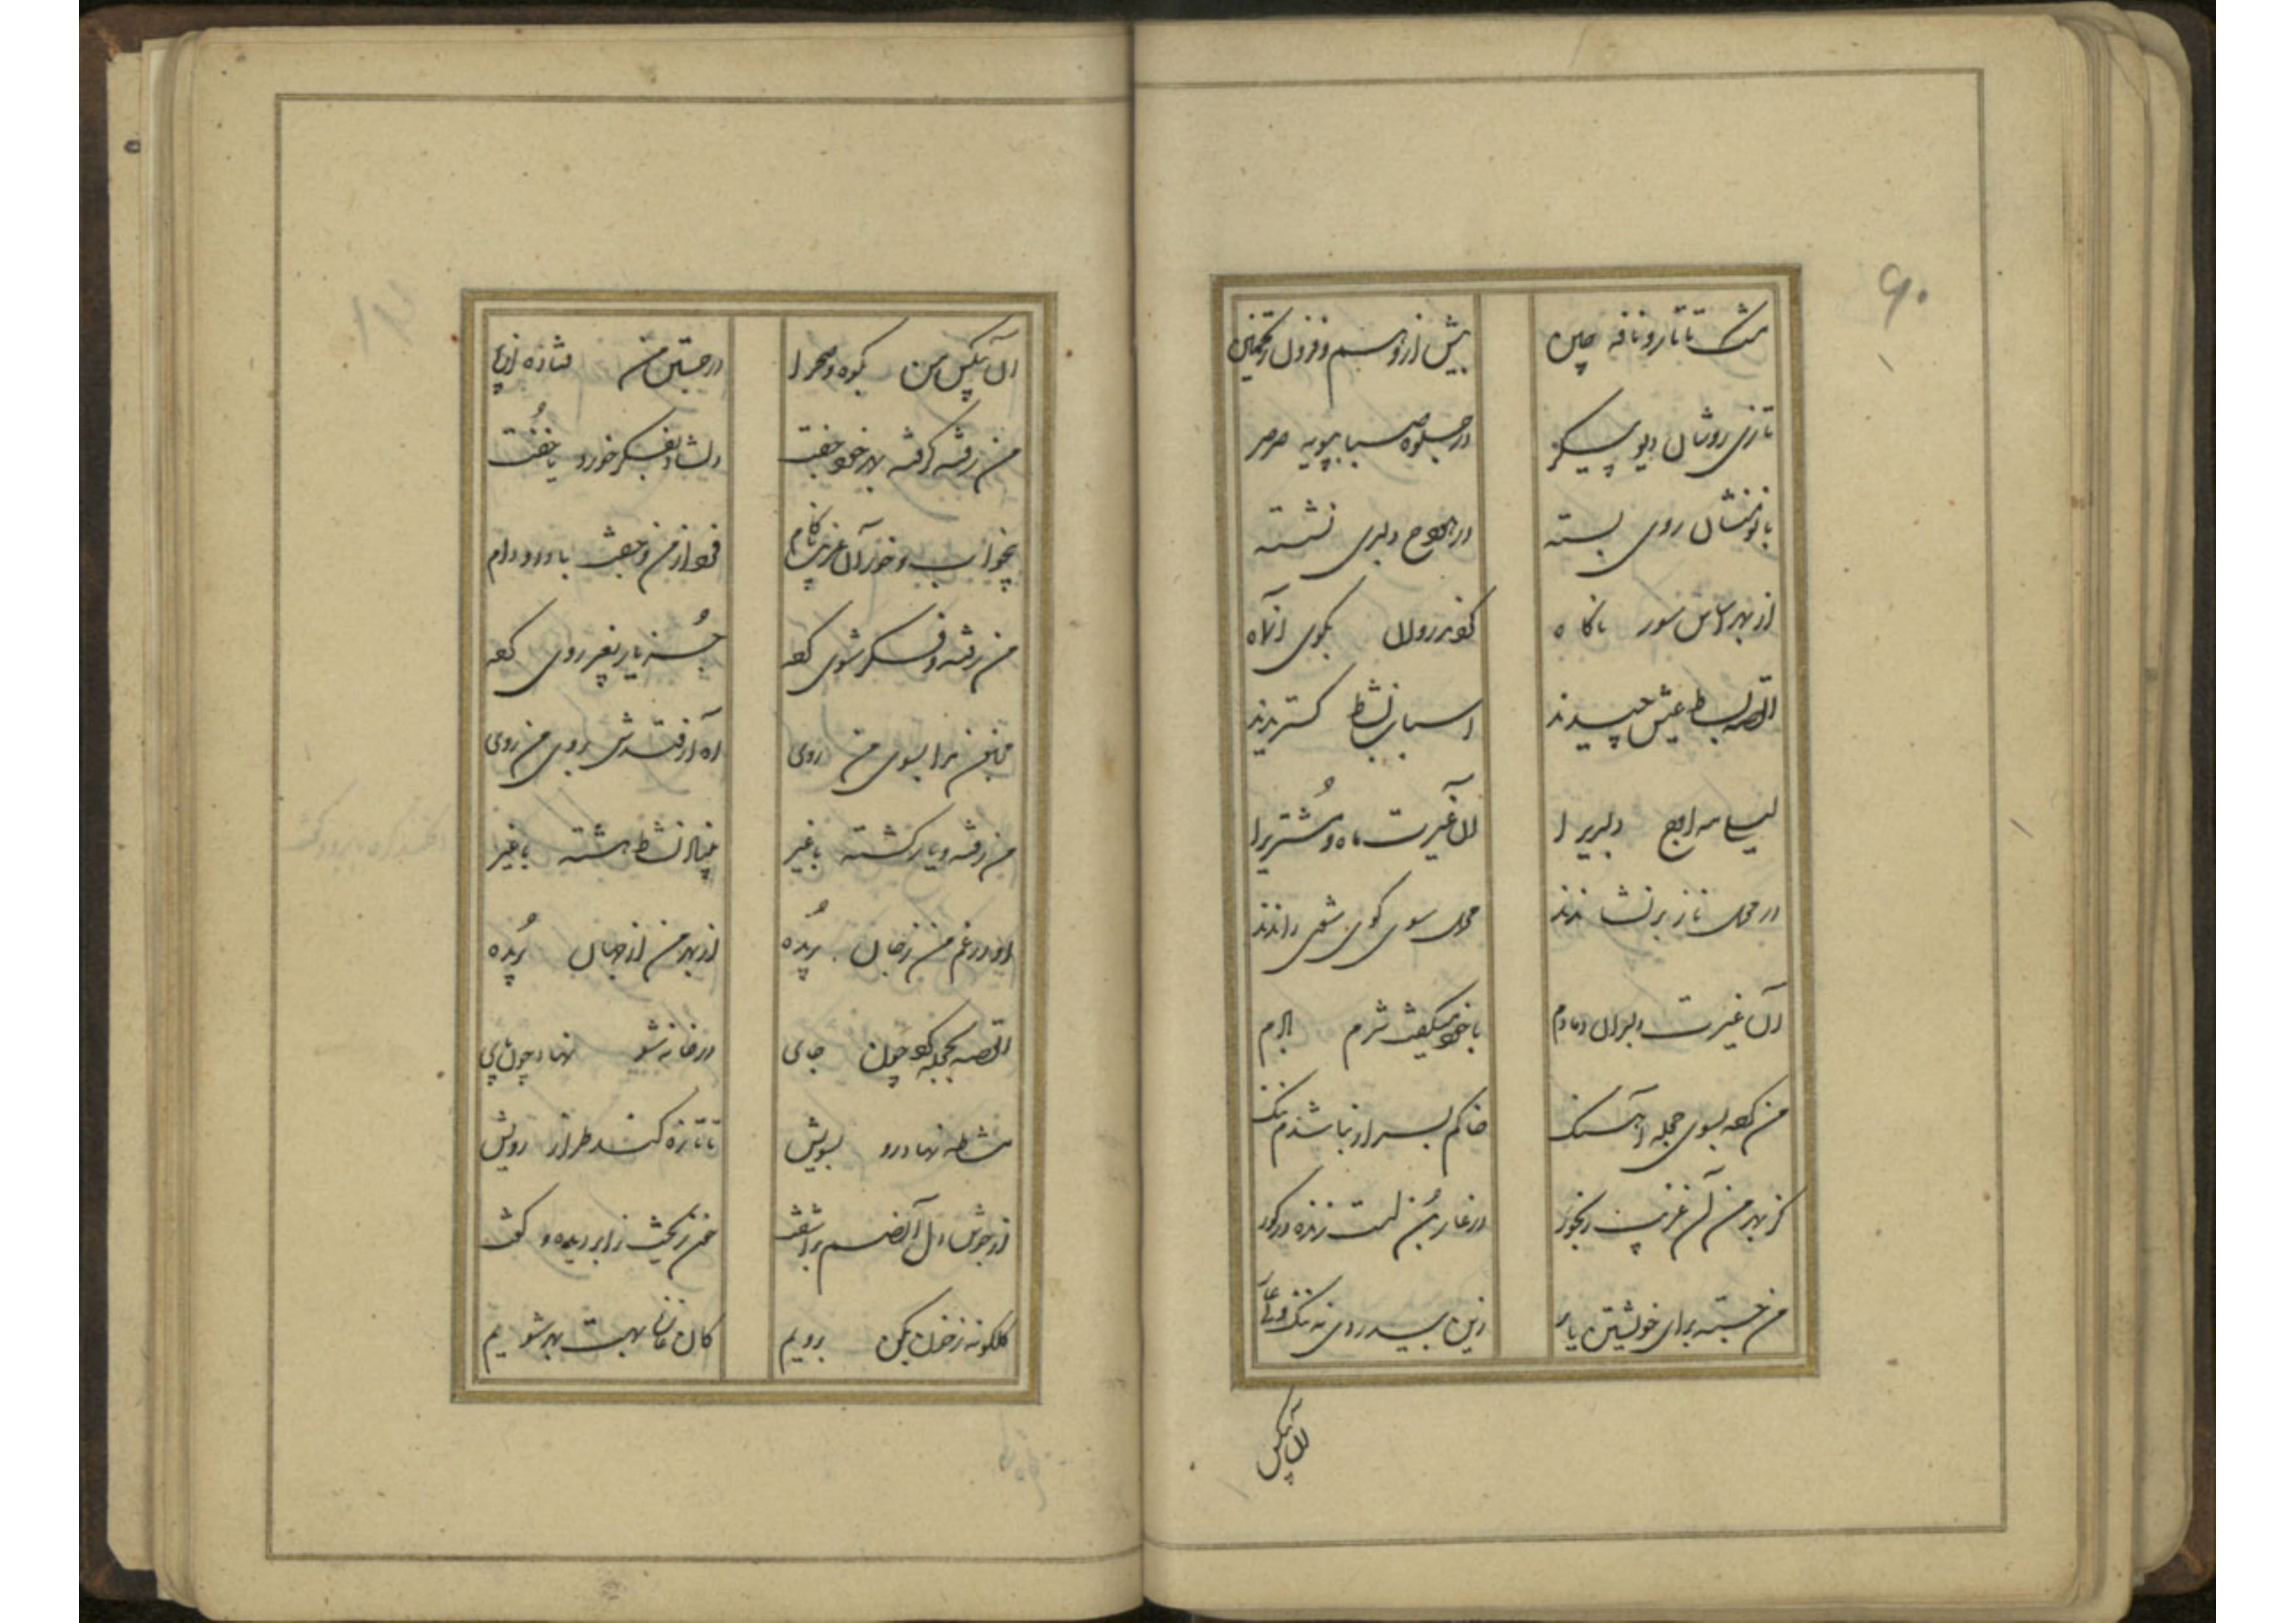 ۹۰
مشک تاتار و نافه چین بیش از و هم و فزون ز تخمین
تازی روشان دیو پیکر در جلوه صبا بپویه صرصر
بانو منشان روی بسته در هودج دلبری نشسته
از بهر اساس سور ناگاه کردند روان بکوی آنماه
القصه بساط عیش چیدند اسباب نشاط گستریدند
لیلی مه اوج دلبری را آن غیرت ماه و مشتری را
در محمل ناز برنشاندند محمل سوی کوی شوی راندند
آن غیرت دلبران دمادم با خود میگفت شرم بادم
من کرده بسوی حجله آهنگ خاکم بسر ار نباشدم ننگ
کز بهر من آن غریب رنجور در غار بن است زنده در گور
من جسته برای خویشتن یار زین بیسد روی نه ننگ و نی عار
آن بیکس
آن بیکس من بکوه و صحرا در جستن من فتاده از پا
من رفته گرفته بهر خود جفت دلشاد بفکر خورد یا خفت
بیخواب و خور آن غریب ناکام فرد از من و جفت با دد و دام
من رفته و فکر شوی کرده جز یار بغیر روی کرده
مجنون مرا بسوی من روی آه ار فتدش بروی من روی
من رفته و یار گشته با غیر بنیاد نشاط هشته با غیر
او در غم من ز جان بریده از بهر من از جهان بریده
القصه بحجله کرد چون جای در خانه شو نهاد چون پای
مشاطه نهاد رو بسویش تا تازه کند طراز رویش
از جوش دل آن صنم برآشفت خون ریخت ز ابر دیده و گفت
گلگونه ز خون بکن برویم کان غازه بهست بهر شویم